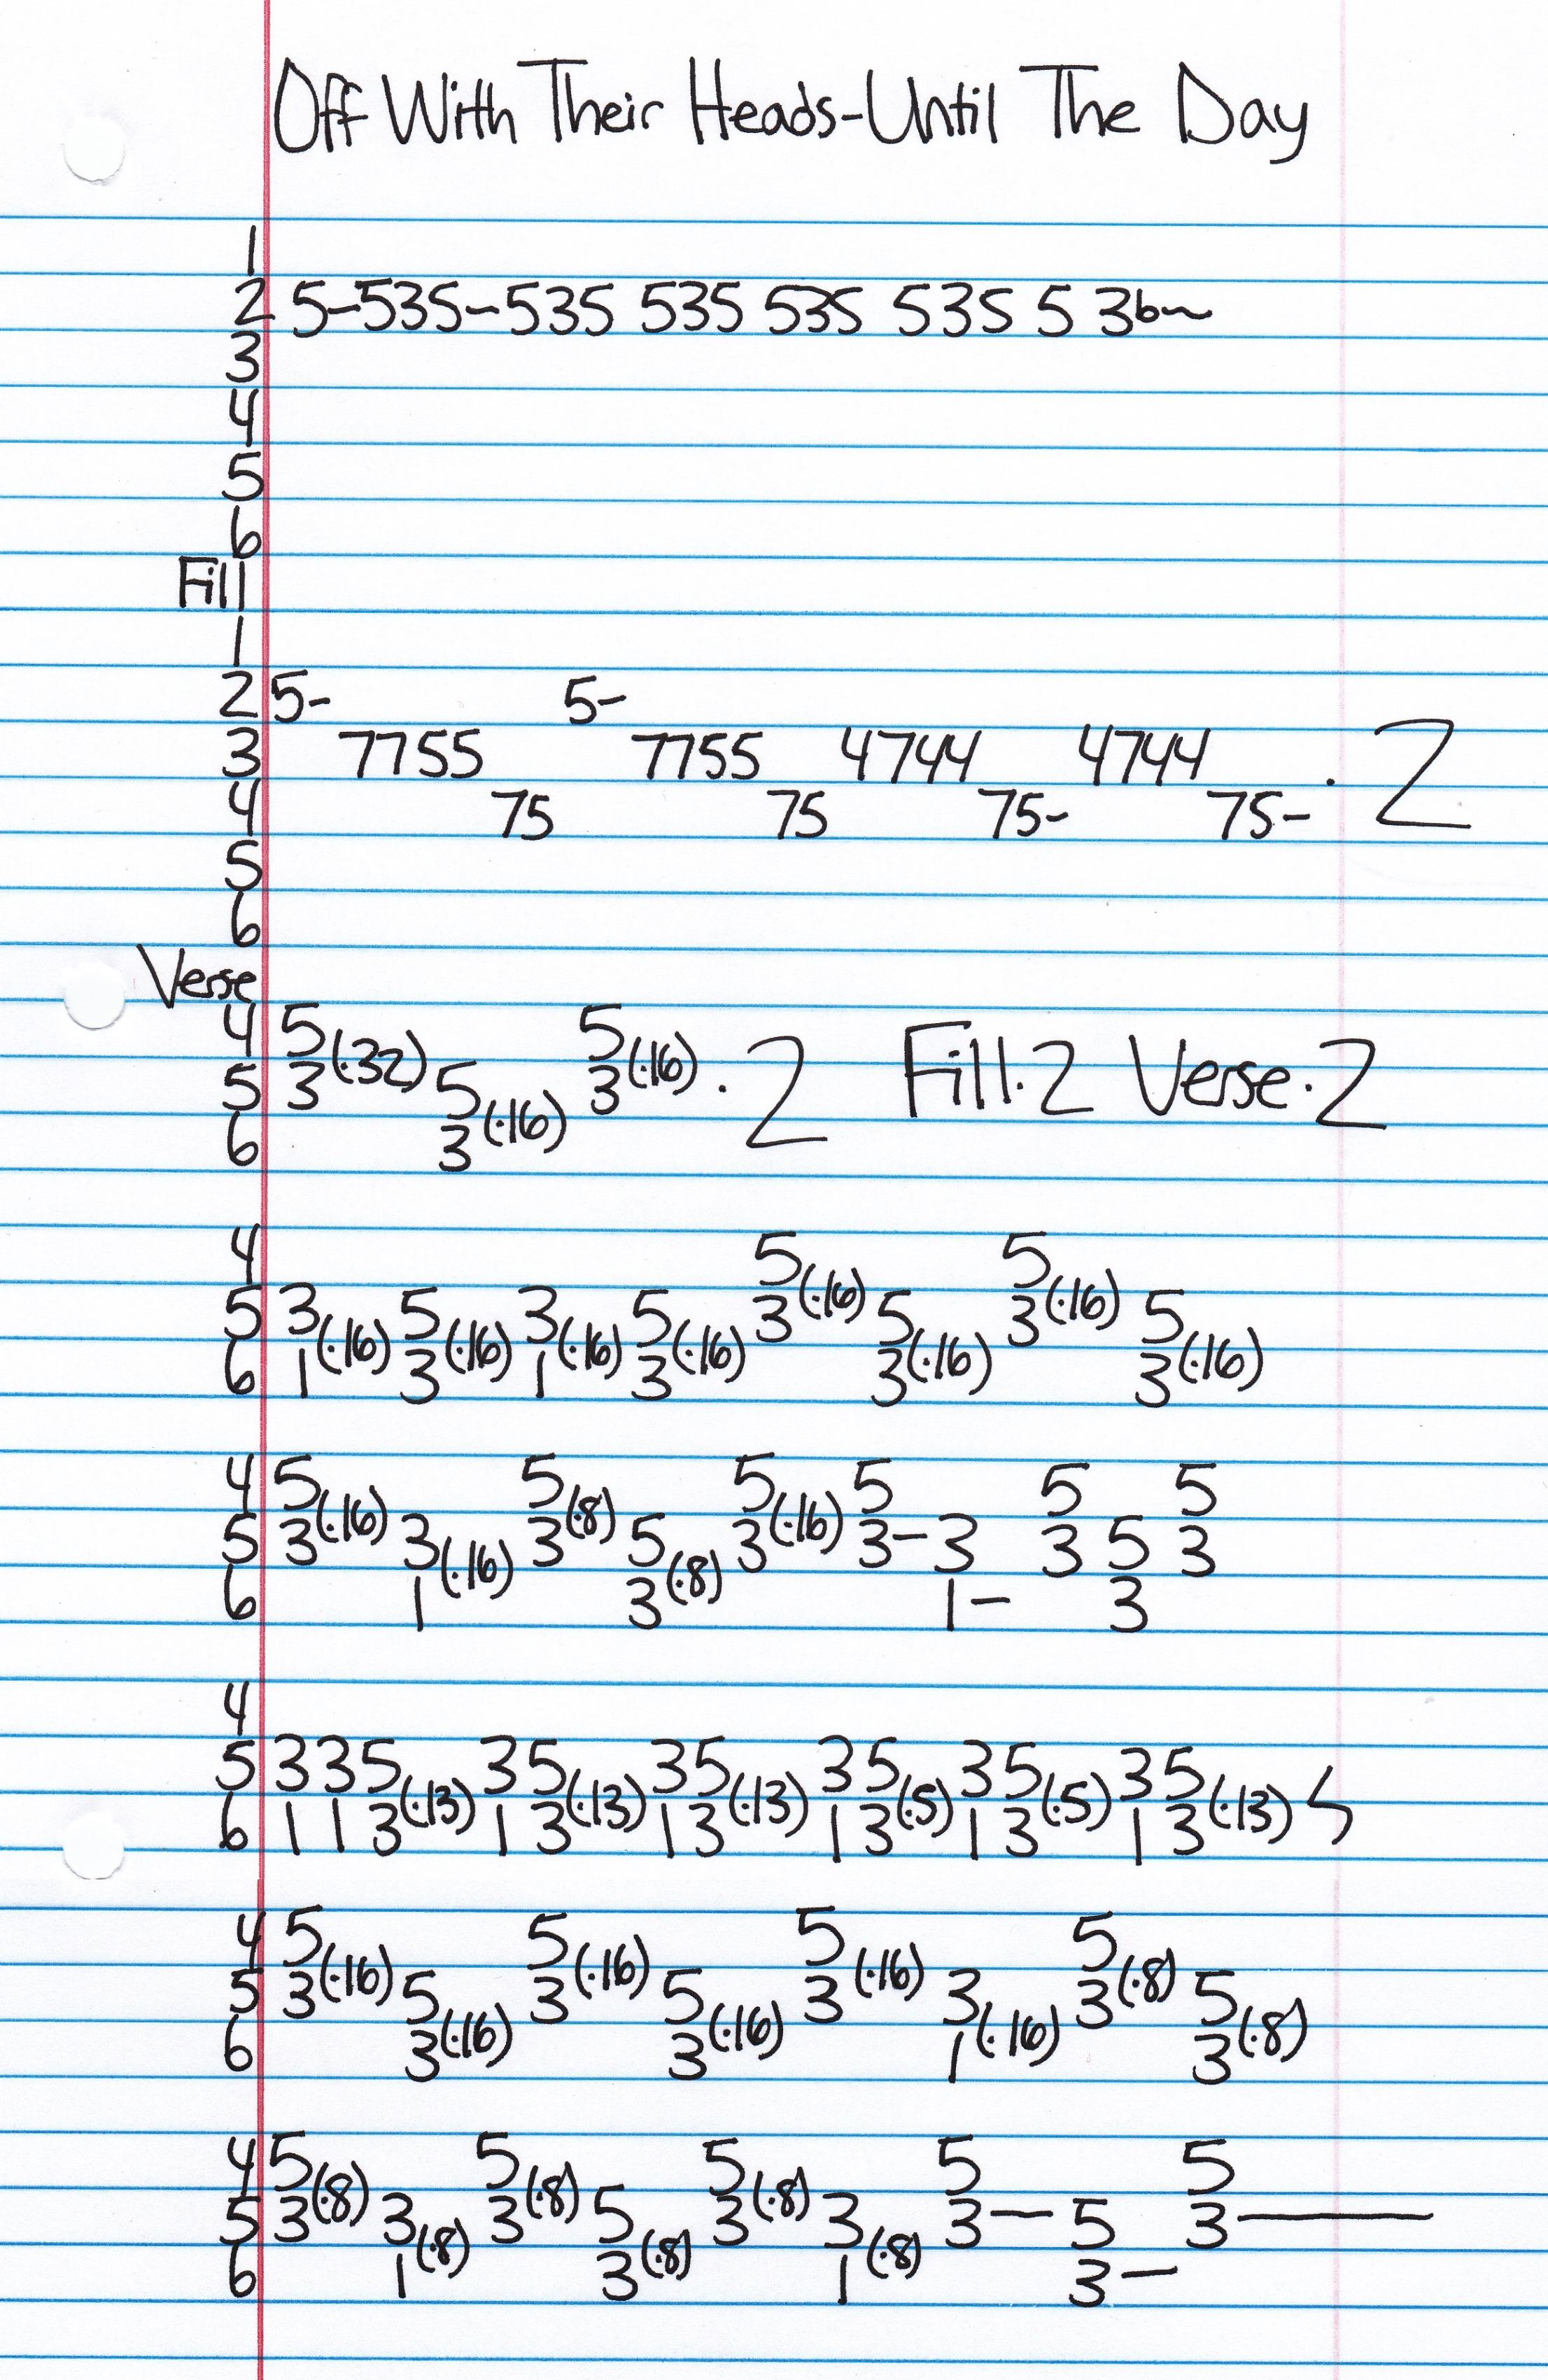 Off With Their Heads-Until The Day
1
2 5-535-535 535 535 535 5 3b~
3
4
5
6
Fill
1
2 5- 5-
3 7755 7755 4744 4744 · 2
4 75 75 75- 75-
5
6
Verse
4 5 5
5 3(·32) 5 3(·16) · 2 Fill·2 Verse·2
6 3(·16)
4 5 5
5 3 5 3 5 3(·16) 5 3(·16) 5
6 1(·16) 3(·16) 1(·16) 3(·16) 3(·16) 3(·16)
4 5 5 5 5 5 5
5 3(·16) 3 3(·8) 5 3(·16) 3- 3 3 5 3
6 1(·16) 3(·8) 1- 3
4
5 3 3 5 3 5 3 5 3 5 3 5 3 5
6 1 1 3(·13) 1 3(·13) 1 3(·13) 1 3(·5) 1 3(·5) 1 3(·13)
4 5 5 5 5
5 3(·16) 5 3(·16) 5 3(·16) 3 3(·8) 5
6 3(·16) 3(·16) 1(·16) 3(·8)
4 5 5 5 5 5
5 3(·8) 3 3(·8) 5 3(·8) 3 3— 5 3———
6 1(·8) 3(·8) 1(·8) 3—